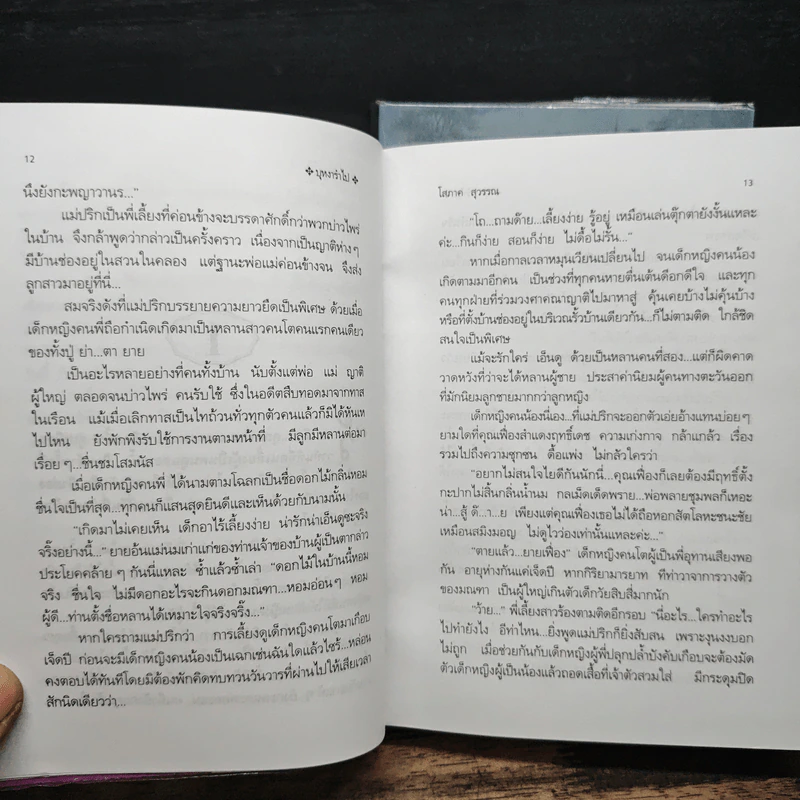 12
บุหงารำไป
นึงยังกะพญาวานร..."
แม่ปริกเป็นพี่เลี้ยงที่ค่อนข้างจะบรรดาศักดิ์กว่าพวกบ่าวไพร่
ในบ้าน จึงกล้าพูดว่ากล่าวเป็นครั้งคราว เนื่องจากเป็นญาติห่างๆ
มีบ้านช่องอยู่ในสวนในคลอง แต่ฐานะพ่อแม่ค่อนข้างจน จึงส่ง
ลูกสาวมาอยู่ที่นี่...
สมจริงดังที่แม่ปริกบรรยายความยาวยืดเป็นพิเศษ ด้วยเมื่อ
เด็กหญิงคนพี่ถือกำเนิดเกิดมาเป็นหลานสาวคนโตคนแรกคนเดียว
ของทั้งปู่ ย่า...ตา ยาย
เป็นอะไรหลายอย่างที่คนทั้งบ้าน นับตั้งแต่พ่อ แม่ ญาติ
ผู้ใหญ่ ตลอดจนบ่าวไพร่ คนรับใช้ ซึ่งในอดีตสืบทอดมาจากทาส
ในเรือน แม้เมื่อเลิกทาสเป็นไทถ้วนทั่วทุกตัวคนแล้วก็มิได้หันเห
ไปไหน ยังพักพิงรับใช้การงานตามหน้าที่ มีลูกมีหลานต่อมา
เรื่อยๆ...ชื่นชมโสมนัส
เมื่อเด็กหญิงคนพี่ ได้นามตามโฉลกเป็นชื่อดอกไม้กลิ่นหอม
ชื่นใจเป็นที่สุด...ทุกคนก็แสนสุดยินดีและเห็นด้วยกับนามนั้น
"เกิดมาไม่เคยเห็น เด็กอาไร้เลี้ยงง่าย น่ารักน่าเอ็นดูซะจริง
จริ๊งอย่างนี้..." ยายอ้นแม่นมเก่าแก่ของท่านเจ้าของบ้านผู้เป็นตากล่าว
ประโยคคล้ายๆ กันนี่แหละ ซ้ำแล้วซ้ำเล่า "ดอกไม้ในบ้านนี้หอม
จริง ชื่นใจ ไม่มีดอกอะไรจะเกินดอกมณฑา...หอมอ่อนๆ หอม
ผู้ดี...ท่านตั้งชื่อหลานได้เหมาะใจจริงจริ๊ง..."
หากใครถามแม่ปริกว่า การเลี้ยงดูเด็กหญิงคนโตมาเกือบ
เจ็ดปี ก่อนจะมีเด็กหญิงคนน้องเป็นเฉกเช่นฉันใดแล้วไซร้...หล่อน
คงตอบได้ทันทีโดยมิต้องพักคิดทบทวนวันวารที่ผ่านไปให้เสียเวลา
สักนิดเดียวว่า...
โสภาค สุวรรณ
13
"โถ...ถามด๊าย...เลี้ยงง่าย รู้อยู่ เหมือนเล่นตุ๊กตายังงั้นแหละ
ค่ะ...กินก็ง่าย สอนก็ง่าย ไม่ดื้อไม่รั้น..."
หากเมื่อกาลเวลาหมุนเวียนเปลี่ยนไป จนเด็กหญิงคนน้อง
เกิดตามมาอีกคน เป็นช่วงที่ทุกคนหายตื่นเต้นดีอกดีใจ และทุก
คนทุกฝ่ายที่ร่วมวงศาคณาญาติไปมาหาสู่ คุ้นเคยบ้างไม่คุ้นบ้าง
หรือที่ตั้งบ้านช่องอยู่ในบริเวณรั้วบ้านเดียวกัน...ก็ไม่ตามติด ใกล้ชิด
สนใจเป็นพิเศษ
แม้จะรักใคร่ เอ็นดู ด้วยเป็นหลานคนที่สอง...แต่ก็ผิดคาด
วาดหวังที่ว่าจะได้หลานผู้ชาย ประสาค่านิยมผู้คนทางตะวันออก
ที่มักนิยมลูกชายมากกว่าลูกหญิง
เด็กหญิงคนน้องนี่เอง...ที่แม่ปริกจะออกตัวเอ่ยอ้างแทนบ่อยๆ
ยามใดที่คุณเฟื่องสำแดงฤทธิ์เดช ความเก่งกาจ กล้าแกล้ว เรื่อง
รวมไปถึงความซุกซน ดื้อแพ่ง ไม่กลัวใครว่า
"อยากไม่สนใจไยดีกันนักนี่...คุณเฟื่องก็เลยต้องมีฤทธิ์ตั้ง
กะปากไม่สิ้นกลิ่นน้ำนม กลเม็ดเด็ดพราย...พ่อพลายชุมพลก็เหอะ
น่า...สู้ ด๊...า...ย เพียงแต่คุณเฟื่องเธอไม่ได้ถือหอกสัตโลหะชนะชัย
เหมือนสมิงมอญ ไม่ดูไวว่องเท่านั้นแหละค่ะ..."
"ตายแล้ว...ยายเฟื่อง" เด็กหญิงคนโตผู้เป็นพี่อุทานเสียงพอ
กัน อายุห่างกันแค่เจ็ดปี หากกิริยามารยาท ทีท่าวาจาการวางตัว
ของมณฑา เป็นผู้ใหญ่เกินตัวเด็กวัยสิบสี่มากนัก
"ว้าย..." พี่เลี้ยงสาวร้องตามติดอีกรอบ "นี่อะไร...ใครทำอะไร
ไปทำยังไง อีท่าไหน...ยิ่งพูดแม่ปริกก็ยิ่งสับสน เพราะงุนงงบอก
ไม่ถูก เมื่อช่วยกันกับเด็กหญิงผู้พี่ปลุกปล้ำบังคับเกือบจะต้องมัด
ตัวเด็กหญิงผู้เป็นน้องแล้วถอดเสื้อที่เจ้าตัวสวมใส่ มีกระดุมปิด